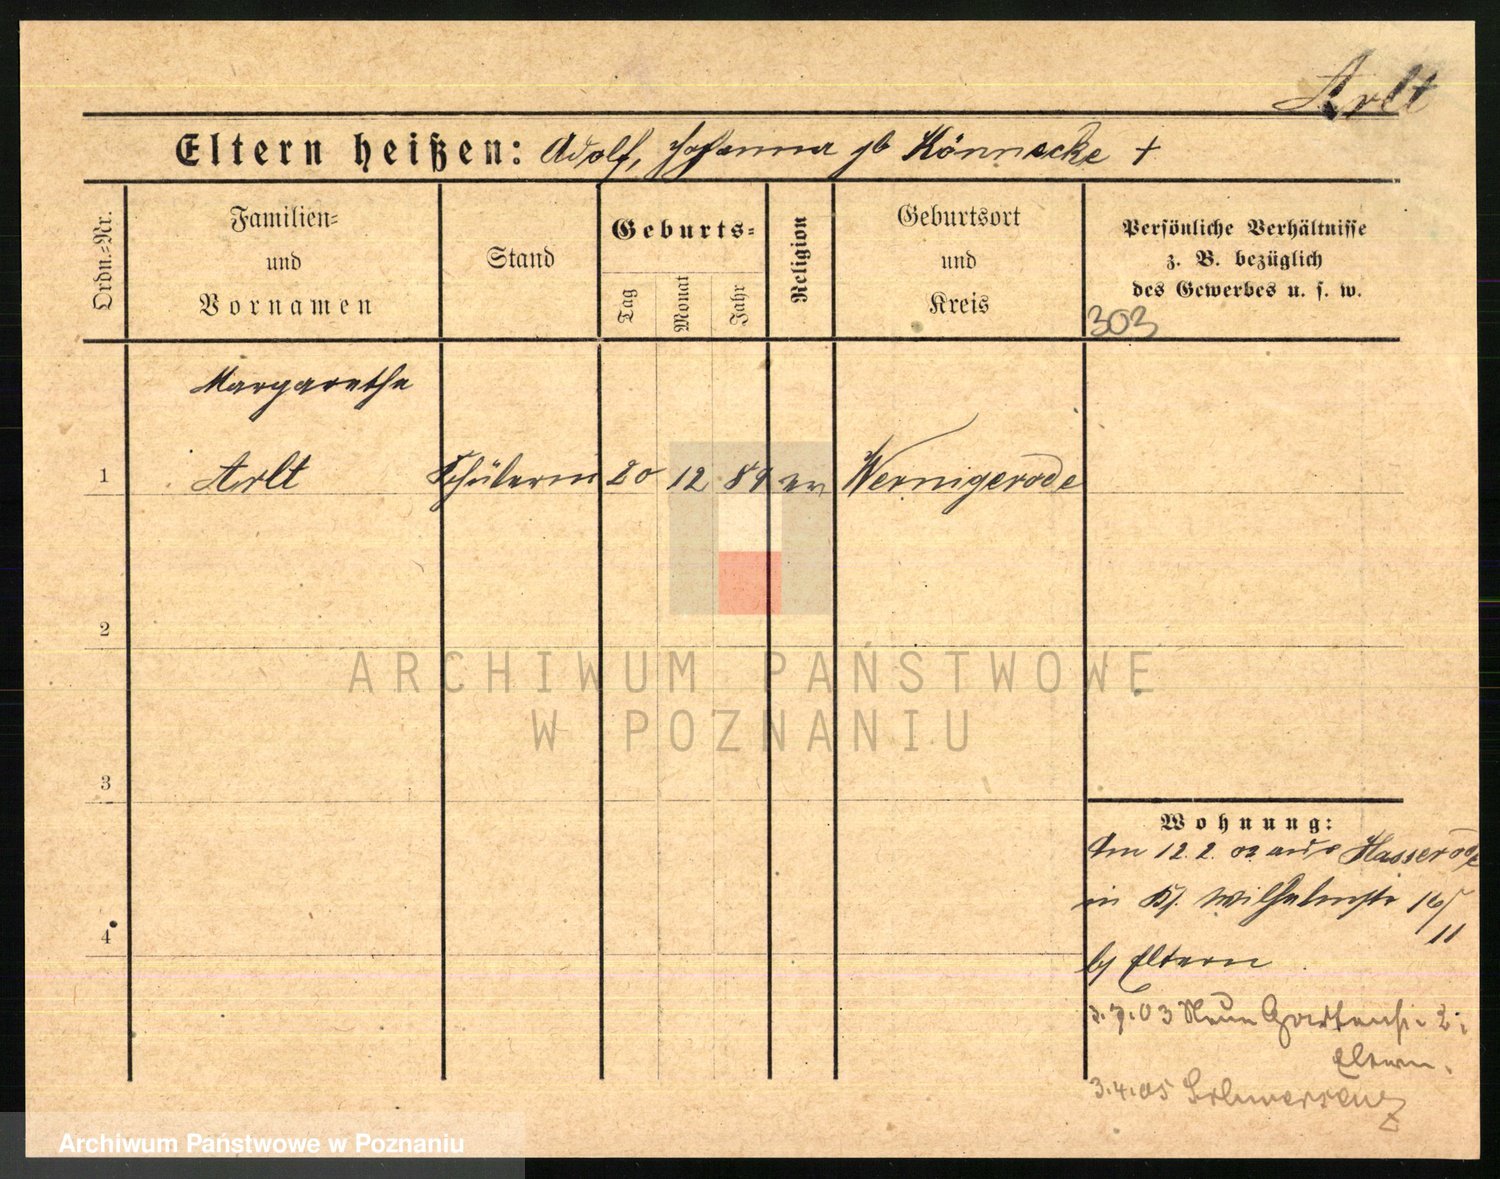 Arlt
Eltern heißen: Adolf, Johanna gb Könnecke †
Ordn.-Nr.
Familien-
und
Vornamen
Stand
Geburts-
Tag
Monat
Jahr
Religion
Geburtsort
und
Kreis
Persönliche Verhältnisse
z. B. bezüglich
des Gewerbes u. s. w.
303
Margarethe
1 Arlt Schülerin 20 12 89 ev Wernigerode
2
ARCHIWUM PAŃSTWOWE
W POZNANIU
3
Wohnung:
Am 12. 2. 02 aus Hasserode
in Wilhelmstr 16/
11
4
by Eltern
3.7.03 Neue Gartenstr. 2
Eltern.
3.4.05 Schwersenz
Archiwum Państwowe w Poznaniu